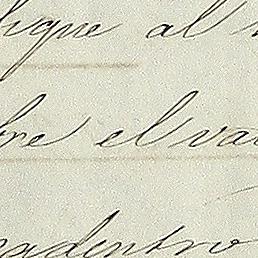 ligue al
bre el va
adentro